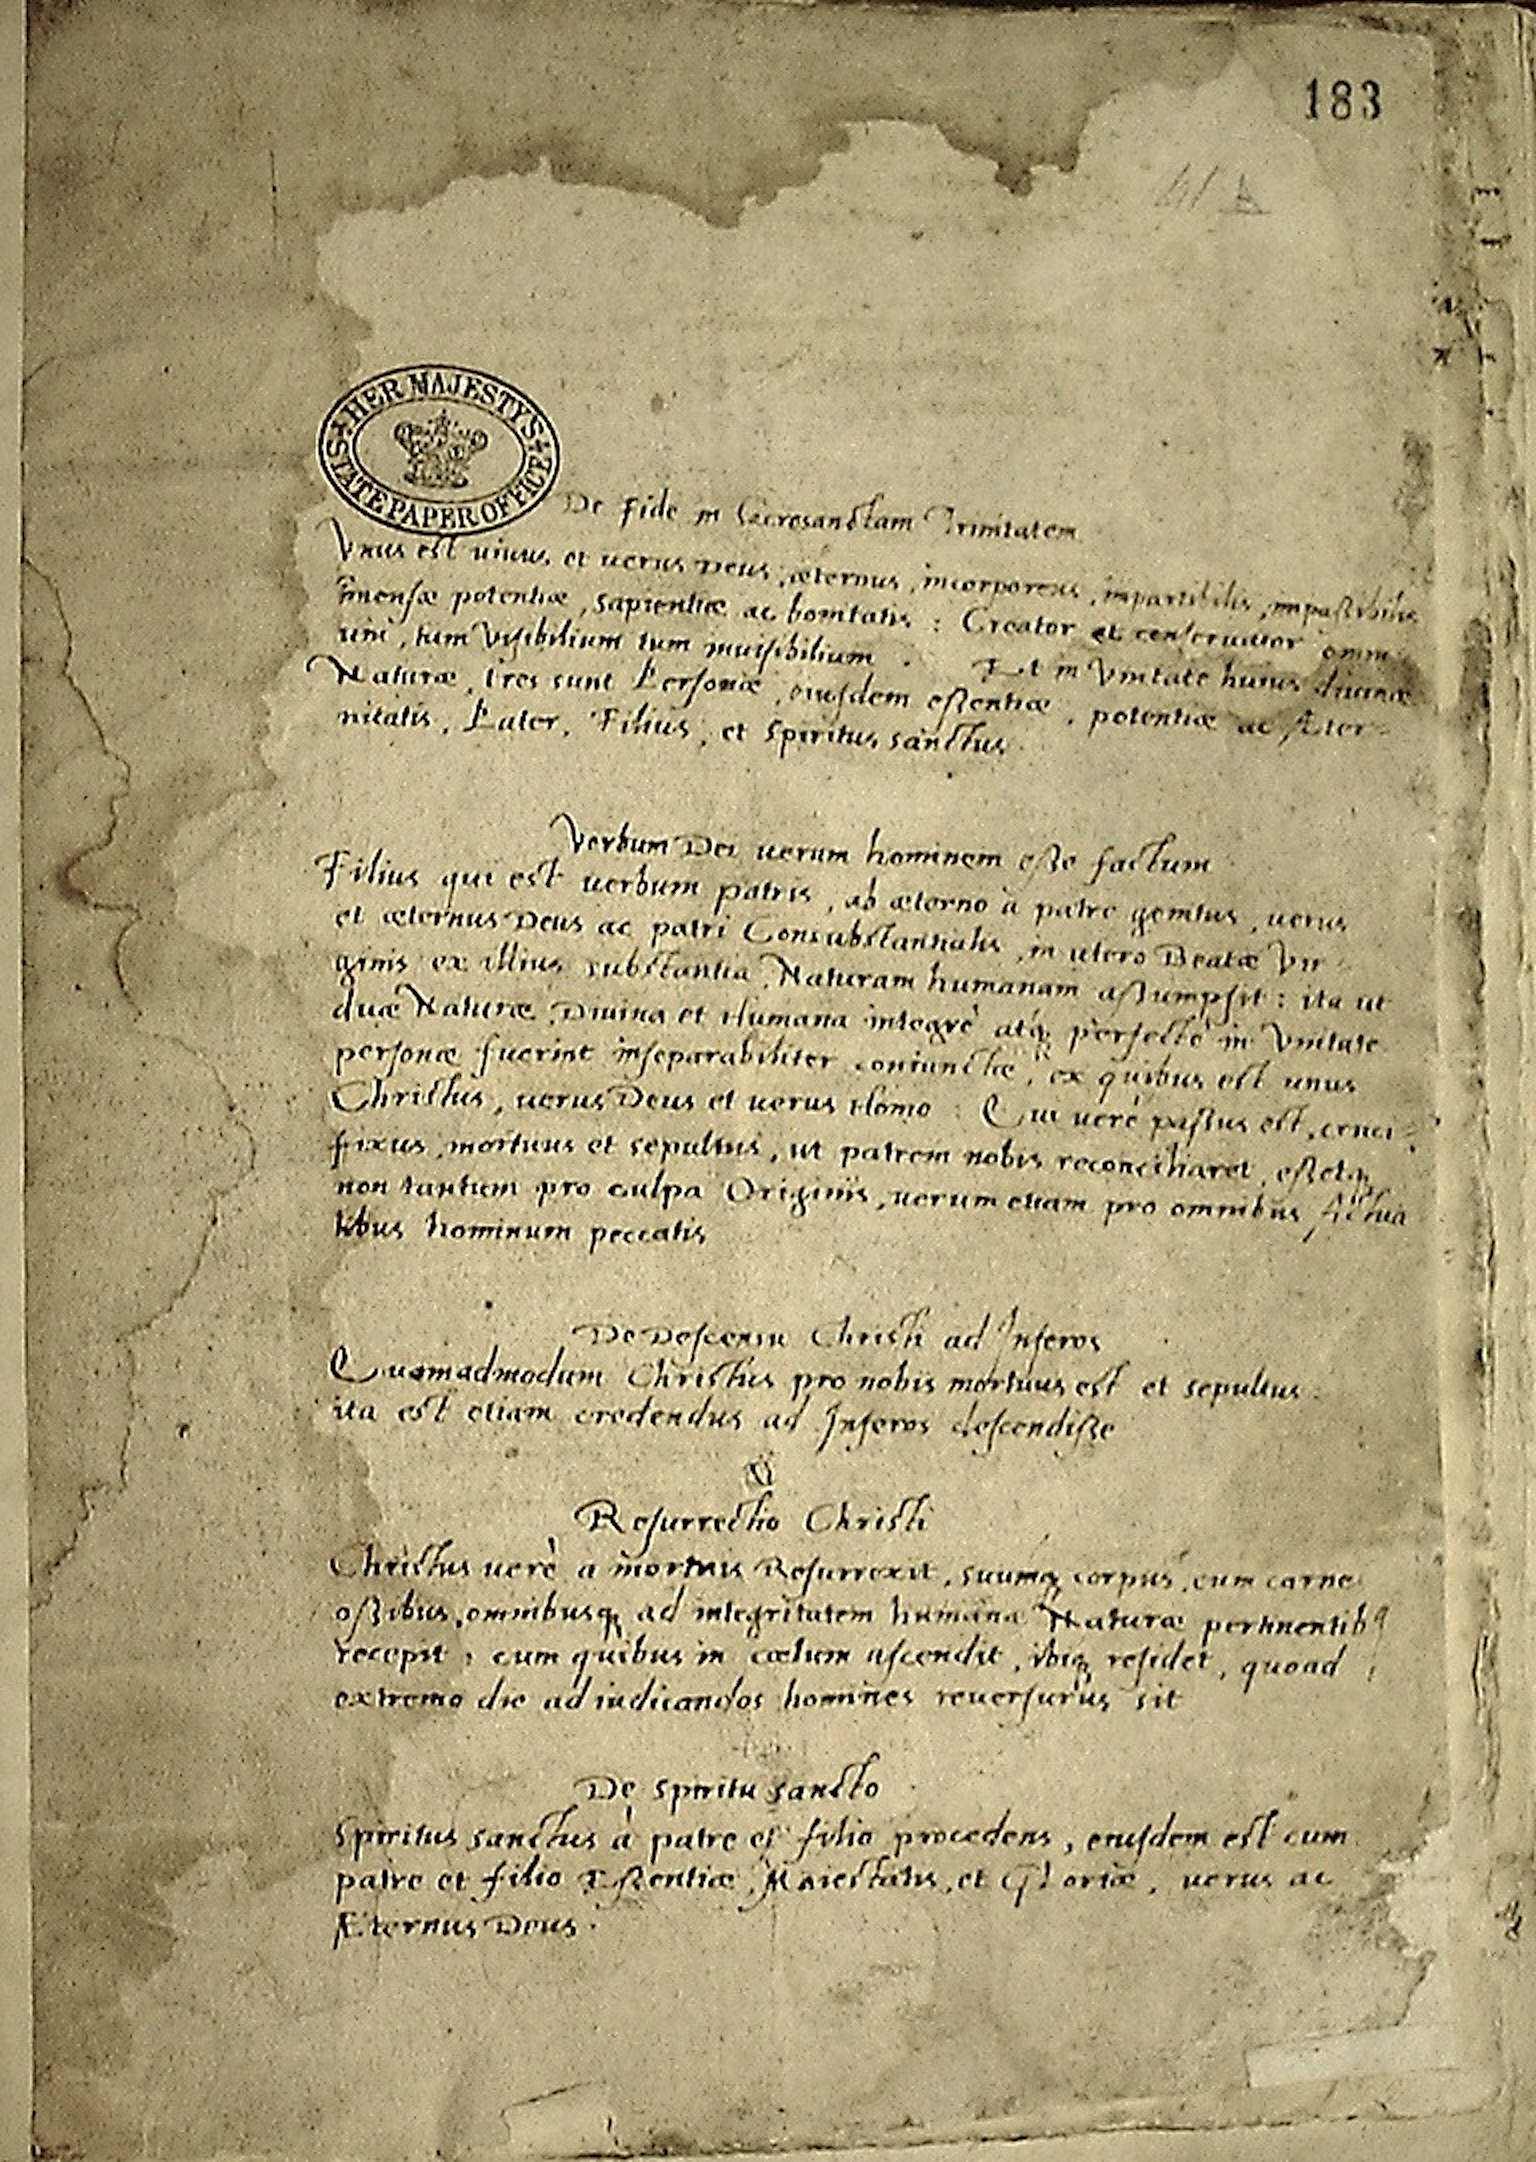 183
41 b
HER MAJESTY'S
STATE PAPER OFFICE
De fide in Sacrosanctam Trinitatem
Vnus est uiuus et uerus Deus, æternus, incorporeus, impartibilis, impassibilis
imensæ potentiæ, sapientiæ ac bonitatis : Creator et conseruator omni
um, tum Visibilium tum inuisibilium . Et in Vnitate huius diuinæ
Naturæ, tres sunt Personæ, eiusdem essentiæ, potentiæ ac Æter-
nitatis, Pater, Filius, et Spiritus sanctus.
Verbum Dei uerum hominem esse factum
Filius qui est uerbum patris, ab æterno à patre genitus, uerus
et æternus Deus ac patri Consubstantialis, in utero Beatæ Vir-
ginis ex illius substantia Naturam humanam assumpsit : ita ut
duæ Naturæ, Diuina et Humana integrè atq perfectè in Vnitate
personæ fuerint inseparabiliter coniunctæ, ex quibus est unus
Christus, uerus Deus et uerus Homo : Qui uerè passus est, cruci-
fixus, mortuus et sepultus, ut patrem nobis reconciliaret, essetq
non tantum pro culpa Originis, uerum etiam pro omnibus Actua
libus hominum peccatis
De Descensu Christi ad Inferos
Quemadmodum Christus pro nobis mortuus est et sepultus
ita est etiam credendus ad Inferos descendisse
Resurrectio Christi
Christus uerè a mortuis Resurrexit, suumq corpus, cum carne
ossibus, omnibusq ad integritatem humanæ Naturæ pertinentib9
recepit : cum quibus in cœlum ascendit, ibiq residet, quoad
extremo die ad iudicandos homines reuersurus sit
De Spiritu sancto
Spiritus sanctus à patre et filio procedens, eiusdem est cum
patre et filio Essentiæ, Maiestatis, et Gloriæ, uerus ac
Æternus Deus .